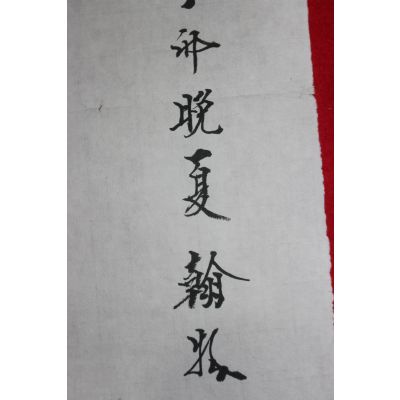 卯晚夏翰